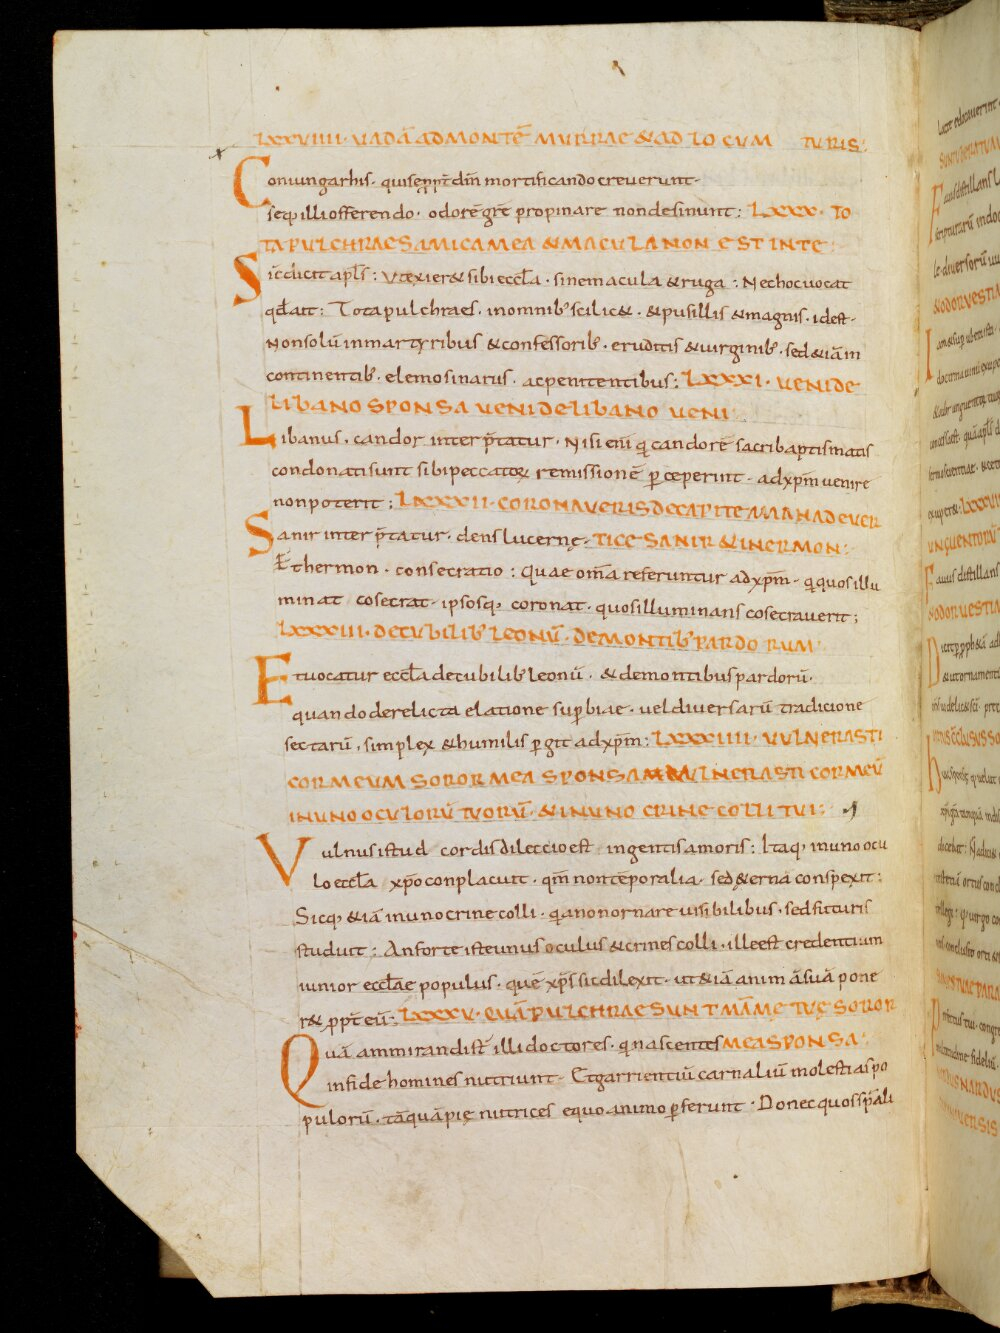 LXXVIIII · UADĀ AD MONTĒ MURRAE & AD LOCUM TURIS:
Coniungar his · qui se ꝓpt̄ dn̄m mortificando creverunt ·
seq; illi offerendo · odorē grē propinare non desinunt: LXXX · TO
TA PULCHRA ES AMICA MEA & MACULA NON EST IN TE:
Sic dicit apłs: Ut exiber& sibi ecclā · sine macula & ruga: Nec hoc vocat
qd ait: Tota pulchra es · in omnib; scilic& · & pusillis & magnis · id est ·
Non solū in martyribus & confessorib; · eruditis & virginib; · sed & iā in
continentib; · elemosinariis · ac penitentibus: LXXXI · UENI DE
LIBANO SPONSA UENI DE LIBANO UENI
Libanus · candor inter p̄tatur · Nisi enī qui candorē sacri baptismatis
condonatis sibi peccatorꝝ remissionē ꝑceperint · ad xp̄m venire
non poterit: LXXXII · CORONAUERIS DE CAPITE AMANA DE UER
Sanir inter p̄tatur · dens lucernę · TICE SANIR & INERMON:
Et hermon · consecratio: Quae om̄a referuntur ad xp̄m · q; quos illu
minat cōsecrat · ipsosq; coronat · quos illuminans cōsecraverit;
LXXXIII · DE CUBILIB; LEONŪ · DE MONTIB; PARDORUM
Et vocatur ecclā de cubilib; leonū · & de montibus pardorū ·
quando derelicta elatione superbiae · vel diversarū tradicione
sectarū · simplex & humilis ꝑgit ad xp̄m: LXXXIIII · UULNERASTI
COR MEUM SOROR MEA SPONSA UULNERASTI COR MEŪ
IN UNO OCULORŪ TUORŪ · & IN UNO CRINE COLLI TUI:
Vulnus istud cordis dileccio est ingentis amoris: Itaq; in uno ocu
lo ecclā xp̄o conplacuit · qm̄ non tēporalia · sed &erna conspexit:
Sicq; & iā in uno crine colli · q̇a non ornare visibilibus · sed futuris
studuit: An forte iste unus oculus & crines colli · ille est credentium
iunior ecclae populus · quē xp̄s sic dilexit · ut & iā animā suā pone
r& ꝓpt̄ eū: LXXXV · QUĀ PULCHRAE SUNT MĀMĘ TUĘ SOROR
Quā ammirandi st̄ illi doctores · qui nascentes MEA SPONSA:
in fide homines nutriunt · Et garrientiū carnaliū molestias po
pulorū · tāquā pię nutrices equo animo ꝑferunt · Donec quos sp̄ali